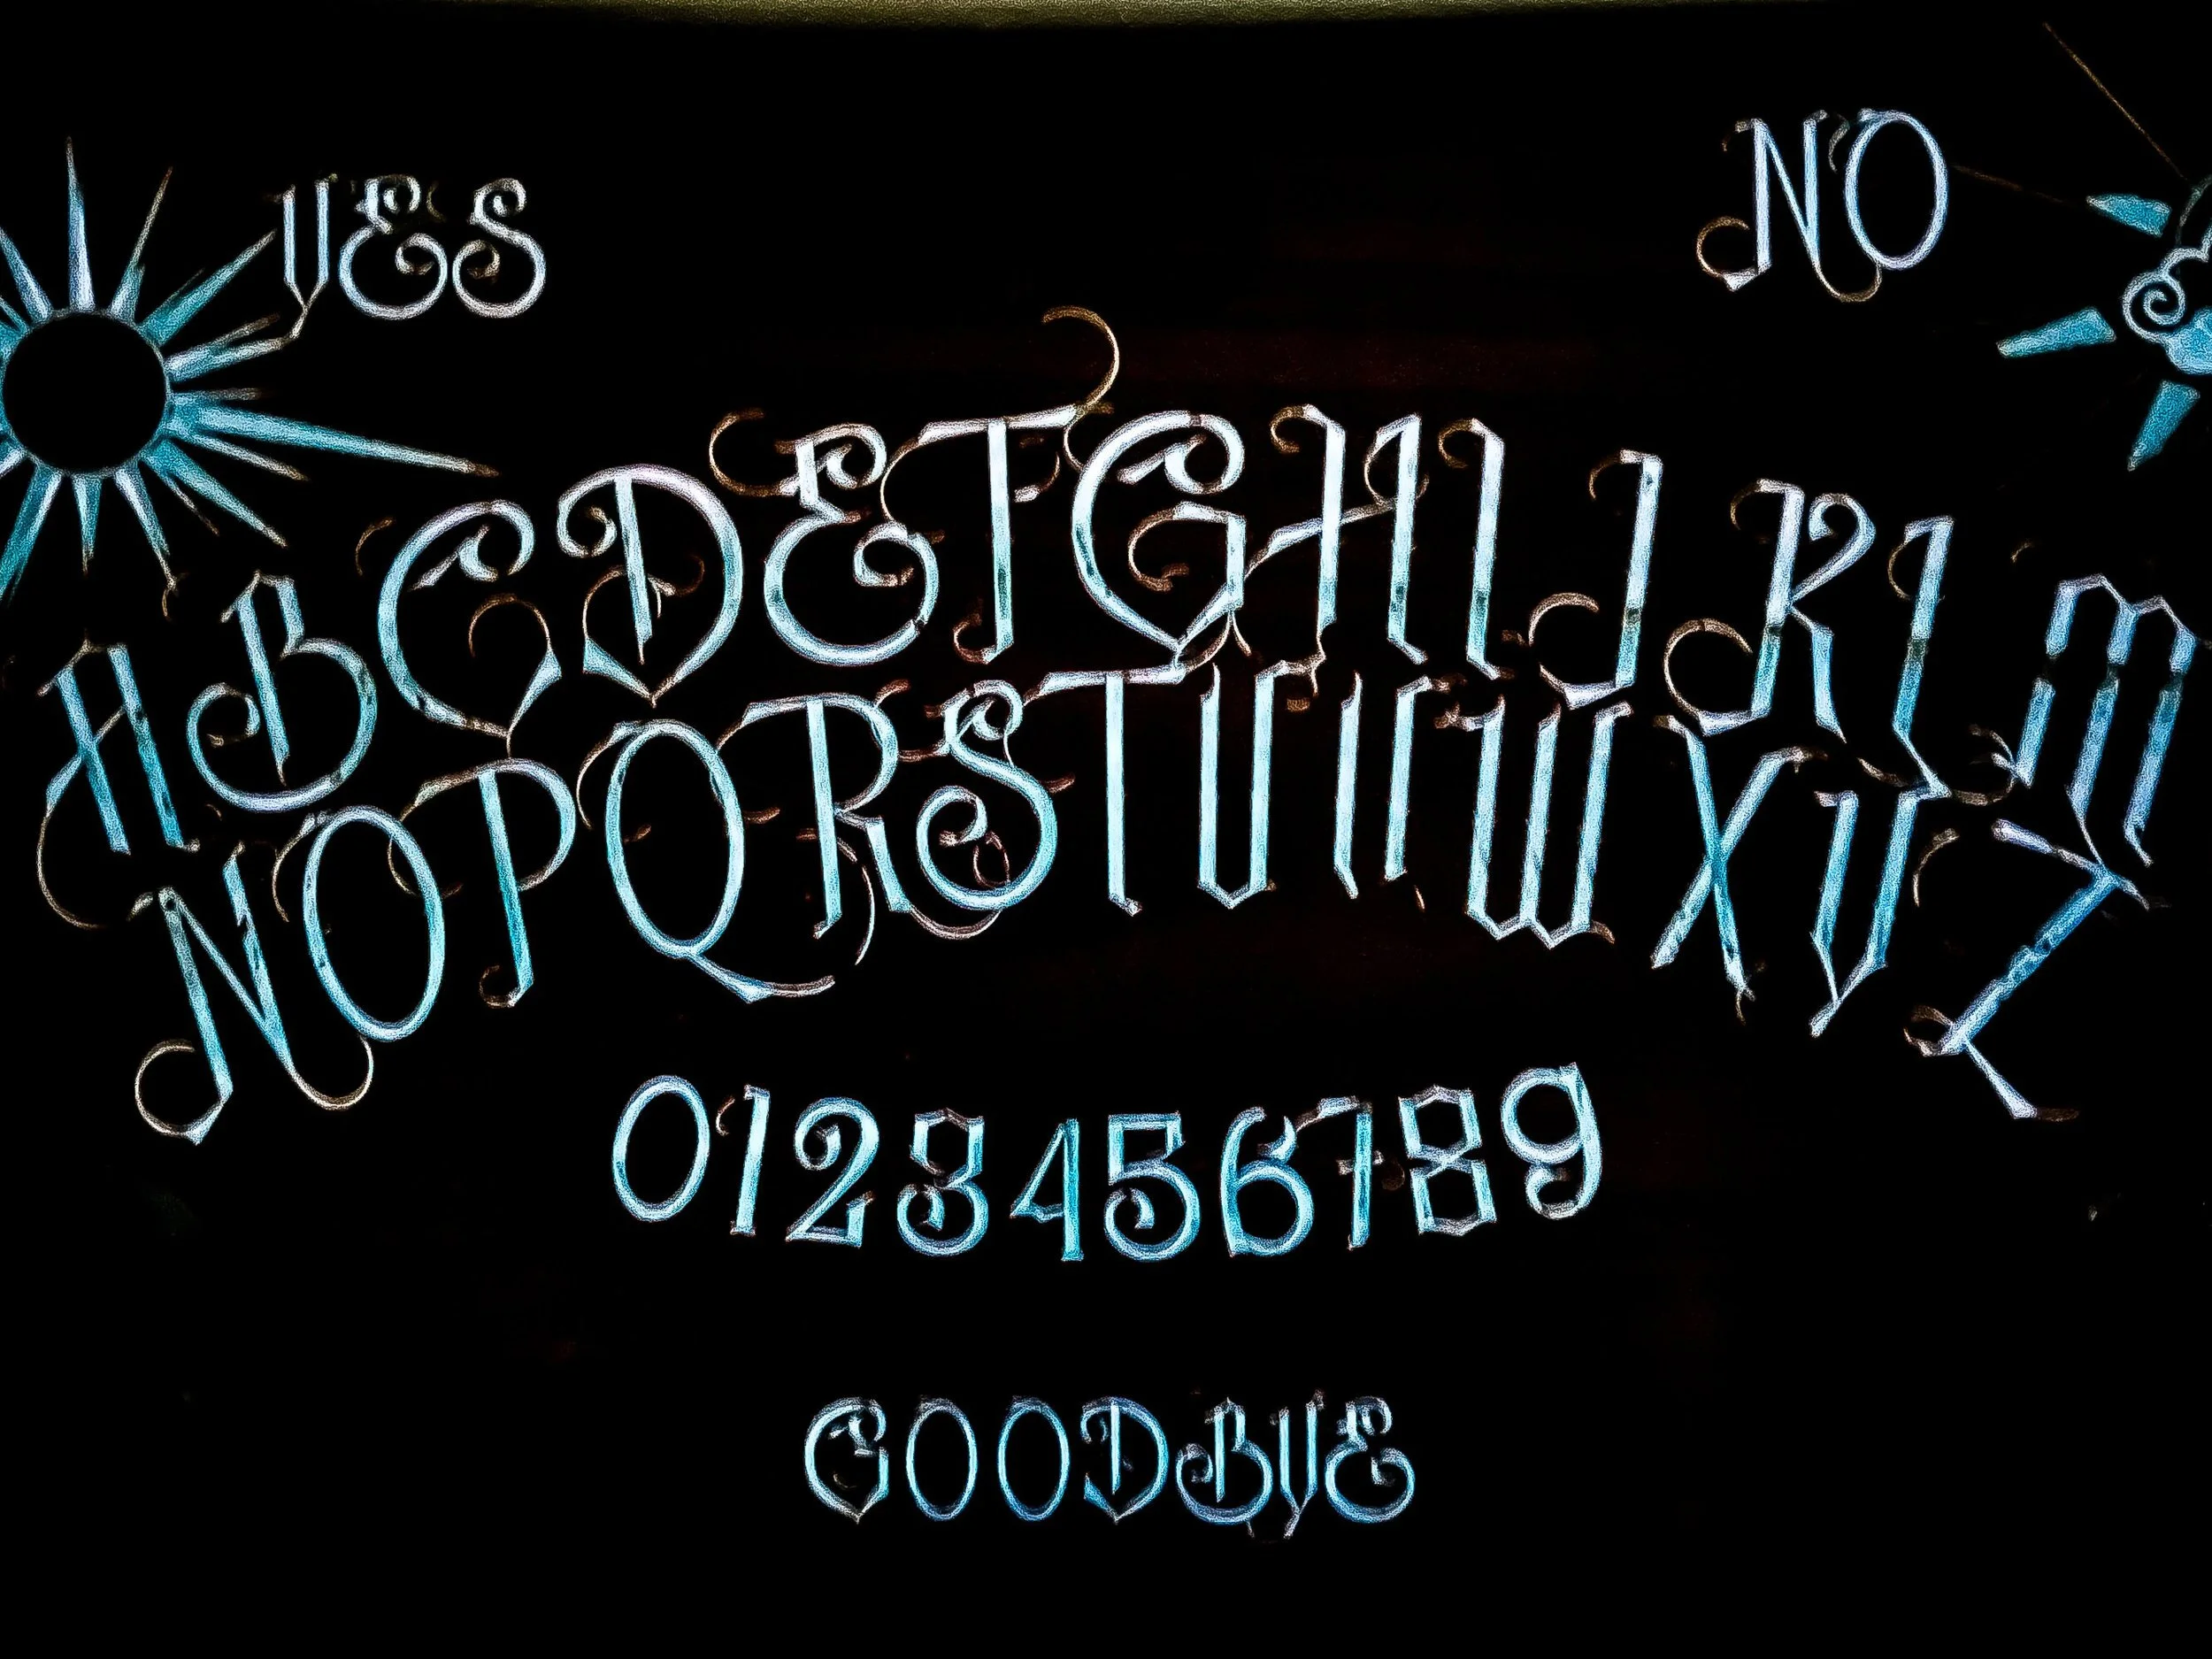 YES NO
ABCDEFGHIJKLM
NOPQRSTUVWXYZ
0123456789
GOODBYE